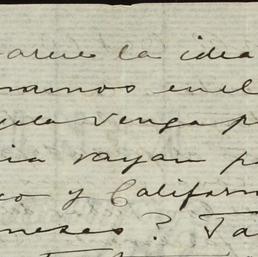 la idea
ramos en el
venga p
ia vayan p
co y Californ
neses? Ta